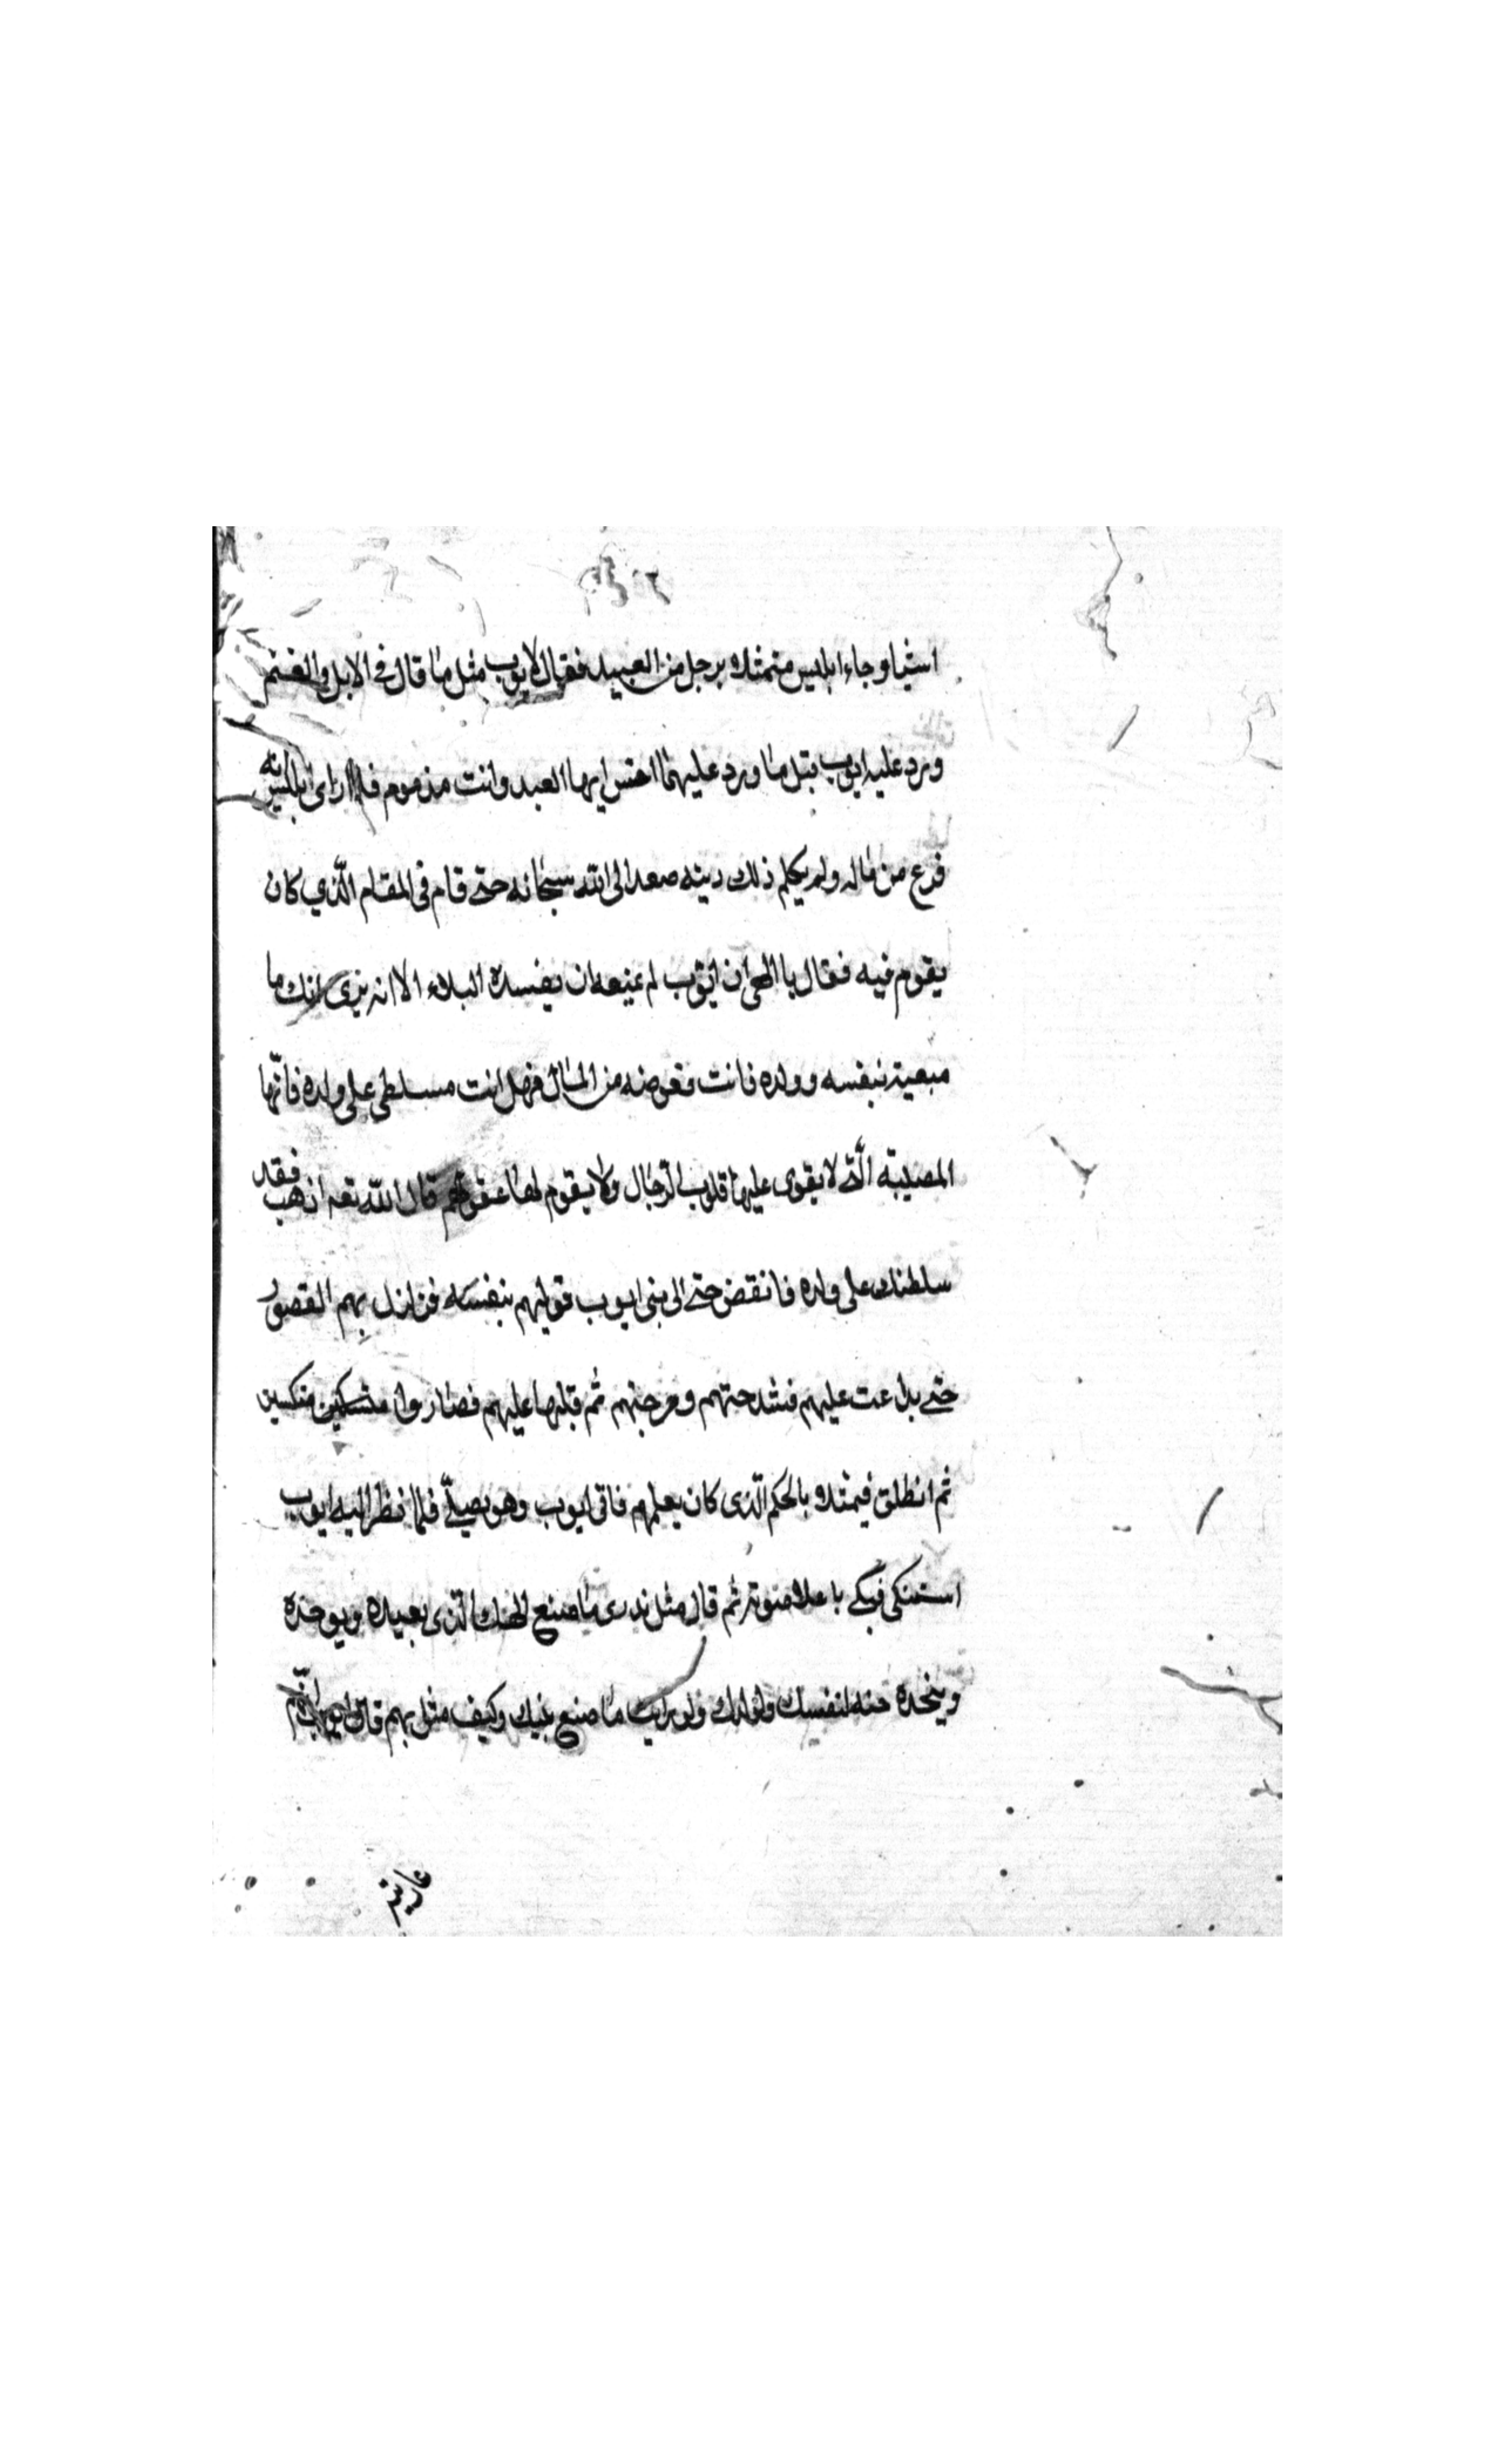 اشيا وجاء ابليس متمثلا برجل من العبيد فقال لايوب مثل ما قال في الابل والغنم
ورد عليه ايوب بتل ما ورد عليهما اخس ايها العبد وانت مذموم فلما راى ابليس انه
فرع من ماله ولم يكلم ذلك دينه صعد الى الله سبحانه حتى قام في المقام الذي كان
يقوم فيه فقال يا الهى ان ايوب لم يمنعه ان يفسده البلاء الا انه يرى انك ما
متعته بنفسه وولده فانت تعوضه من المال فهل انت مسلطى على ولده فانها
المصيبة التى لا يقوى عليها قلوب الرجال ولا يقوم لها عقولهم قال الله تعه اذهب فقد
سلطتك على ولده فانقض حتى الى بنى ايوب بنفسه فزلزل بهم القصور
حتى عليهم فشدختهم ثم قبلها عليهم فصاروا منكسين
ثم انطلق فيمثلا بالحكم الذى كان يعلمهم فاتى ايوب وهو يصلى فلما نظر اليه ايوب
فبكى باعلا صوته ثم قال ما صنع الهك الذى
لنفسك ولولدك ولو رايت ما صنع ببنيك وكيف مثل بهم قال